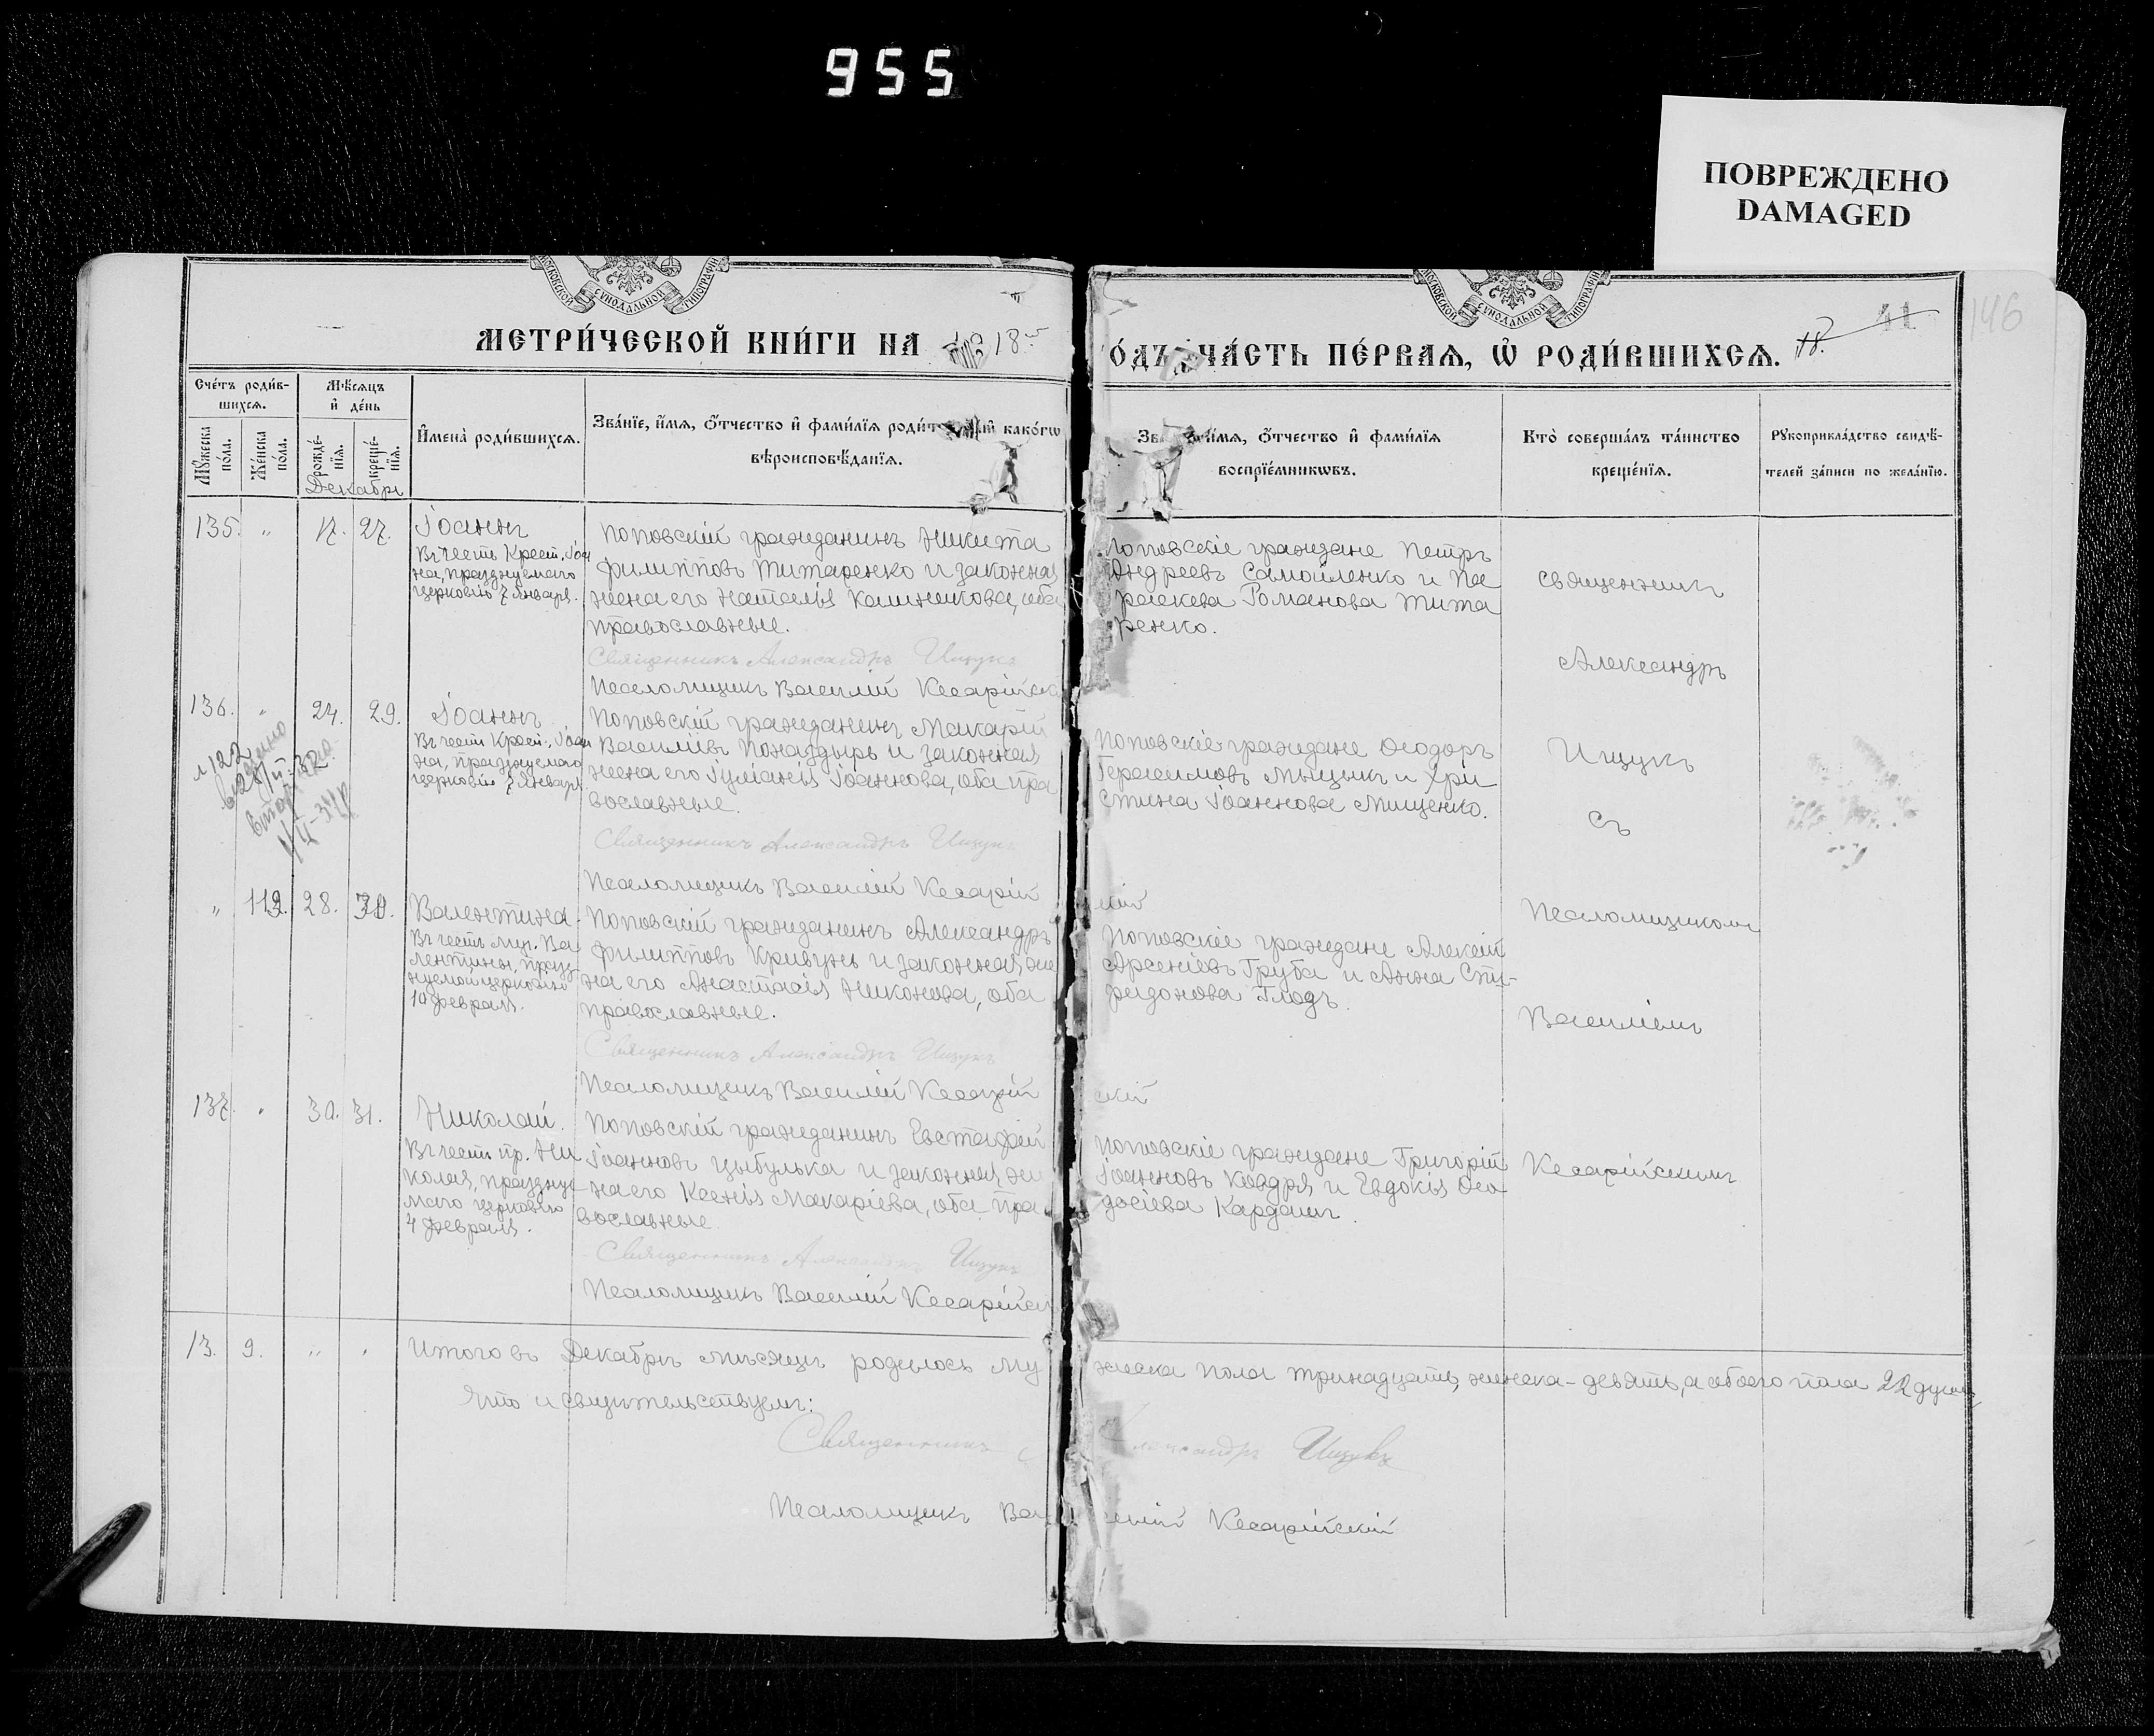 955
ПОВРЕЖДЕНО
DAMAGED
МОСКОВСКОЙ СѴНОДАЛЬНОЙ ТИПОГРАФІИ
МОСКОВСКОЙ СѴНОДАЛЬНОЙ ТИПОГРАФІИ
МЕТРИ́ЧЕСКОЙ КНИ́ГИ НА 1918
О́ДЪ ЧА́СТЬ ПЕ́РВАЯ, Ѿ РОДИ́ВШИХСЯ.
18.
41
146
Сче́тъ роди́в-
шихся.
Мѣ́сяцъ
и҆ де́нь
Мꙋ́жеска по́ла.
Же́нска по́ла.
рожде́-
нїя.
креще́-
нїя.
Декабрь
И҆мена̀ роди́вшихся.
Зва́нїе, и҆́мя, ѻ҆́тчество и҆ фами́лїя роди́т и҆ како́гѡ
вѣроисповѣ́данїя.
Зва и҆́мя, ѻ҆́тчество и҆ фами́лїя
воспрїе́мникѡвъ.
Кто̀ соверша́лъ та́инство
креще́нїя.
Рꙋкоприкла́дство свидѣ́-
телей за́писи по жела́нїю.
135. " 17. 27.
Іоаннъ
Въ честь Крест. Іоан
на, празднуемаго
церковію 7 января.
Поповскій гражданинъ Никита
Филипповъ Титаренко и законная
жена его Наталія Калинникова, оба
православные.
Священникъ Александръ Ищукъ
Псаломщикъ Василій Кесарійск
Поповскіе граждане Петръ
Андреевъ Самойленко и Па
раскева Романова Тита
ренко.
священникъ
Александръ
136. " 24. 29.
Іоаннъ
Въ честь Крест. Іоан
на, празднуемаго
церковію 7 январ
Поповскій гражданинъ Макарій
Василіевъ Поназдырь и законная
жена его Іуліанія Іоаннова, оба пра
вославные.
Священникъ Александръ Ищукъ
Псаломщикъ Василій Кесарій
скій
Поповскіе граждане Ѳеодоръ
Герасимовъ Мыцыкъ и Хри
стина Іоаннова Мищенко.
Ищукъ
съ
" 112. 28. 30.
Валентина
Въ честь муч. Ва
лентины, празд-
нуемой церковію
10 февраля.
Поповскій гражданинъ Александръ
Филипповъ Кривунъ и законная же
на его Анастасія Никонова, оба
православные.
Священникъ Александръ Ищукъ
Псаломщикъ Василій Кесарій
скій
Поповскіе граждане Алексій
Арсеніевъ Груба и Анна Спи-
ридонова Гладъ.
Псаломщикомъ
Василіемъ
137. " 30. 31.
Николай.
Въ честь пр. Ни
колая, празднуе-
маго церковію
4 февраля.
Поповскій гражданинъ Евстафій
Іоанновъ Цыбулька и законная же
на его Ксенія Макаріева, оба пра
вославные.
Священникъ Александръ Ищукъ
Псаломщикъ Василій Кесарійск
Поповскіе граждане Григорій
Іоанновъ Ковдря и Евдокія Ѳео-
досіева Кардашъ.
Кесарійскимъ
13. 9. " "
Итого въ Декабрѣ мѣсяцѣ родилось му жеска пола тринадцать, женска - девять, а обоего пола 22 душъ
Что и свидѣтельствуемъ:
Священникъ Александръ Ищукъ
Псаломщикъ Василій Кесарійскій